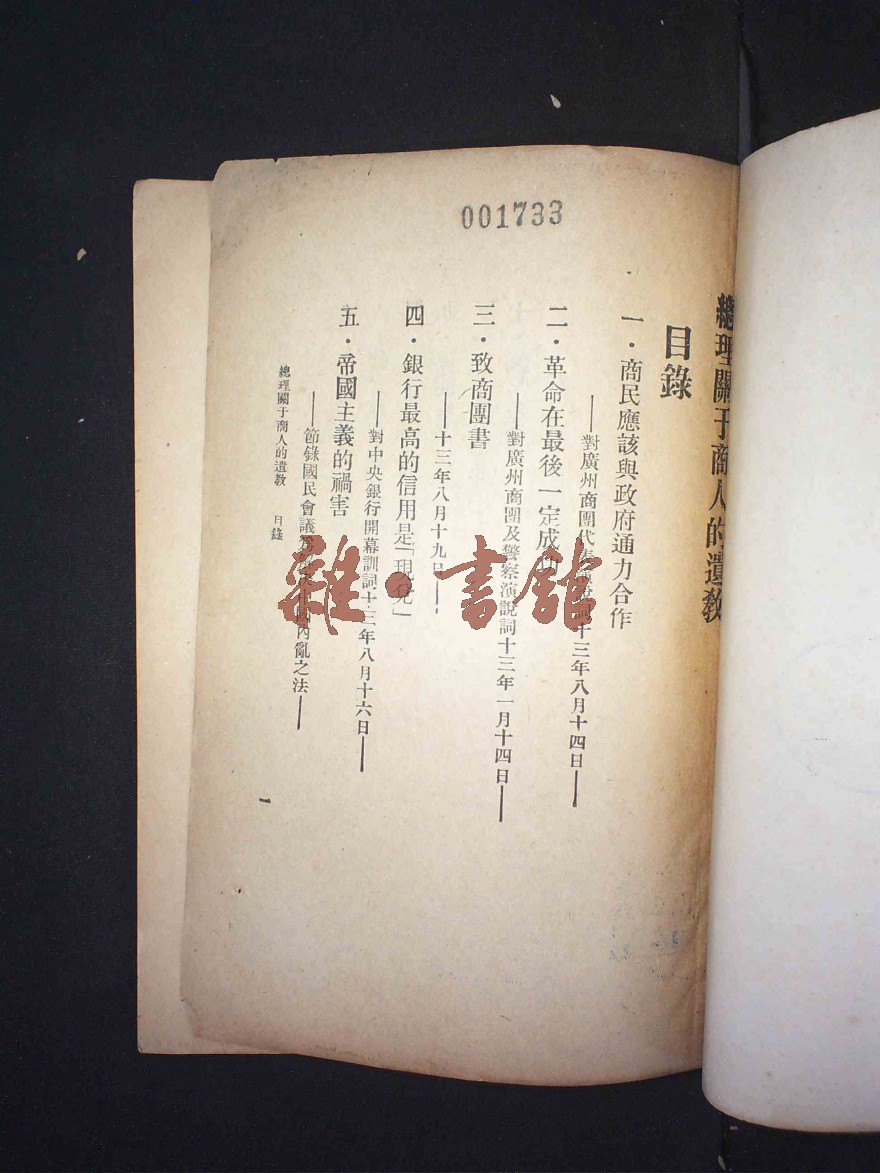 001733
總理關于商人的遺教
目錄
一・商民應該與政府通力合作
——對廣州商團代表演說詞十三年八月十四日——
二・革命在最後一定成功
——對廣州商團及警察演說詞十三年一月十四日——
三・致商團書
——十三年八月十九日——
四・銀行最高的信用是「現兌」
——對中央銀行開幕訓詞十三年八月十六日——
五・帝國主義的禍害
——節錄國民會議為解決中國內亂之法——
總理關于商人的遺教 目錄
一
雜・書館